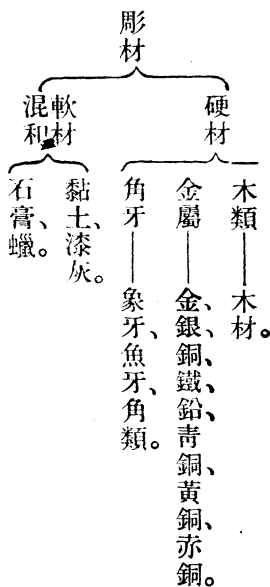 彫材
硬材
木類——木材。
金屬——金、銀、銅、鐵、鉛、靑銅、黃銅、赤銅。
角牙——象牙、魚牙、角類。
軟材
混和
黏土、漆灰。
石膏、蠟。